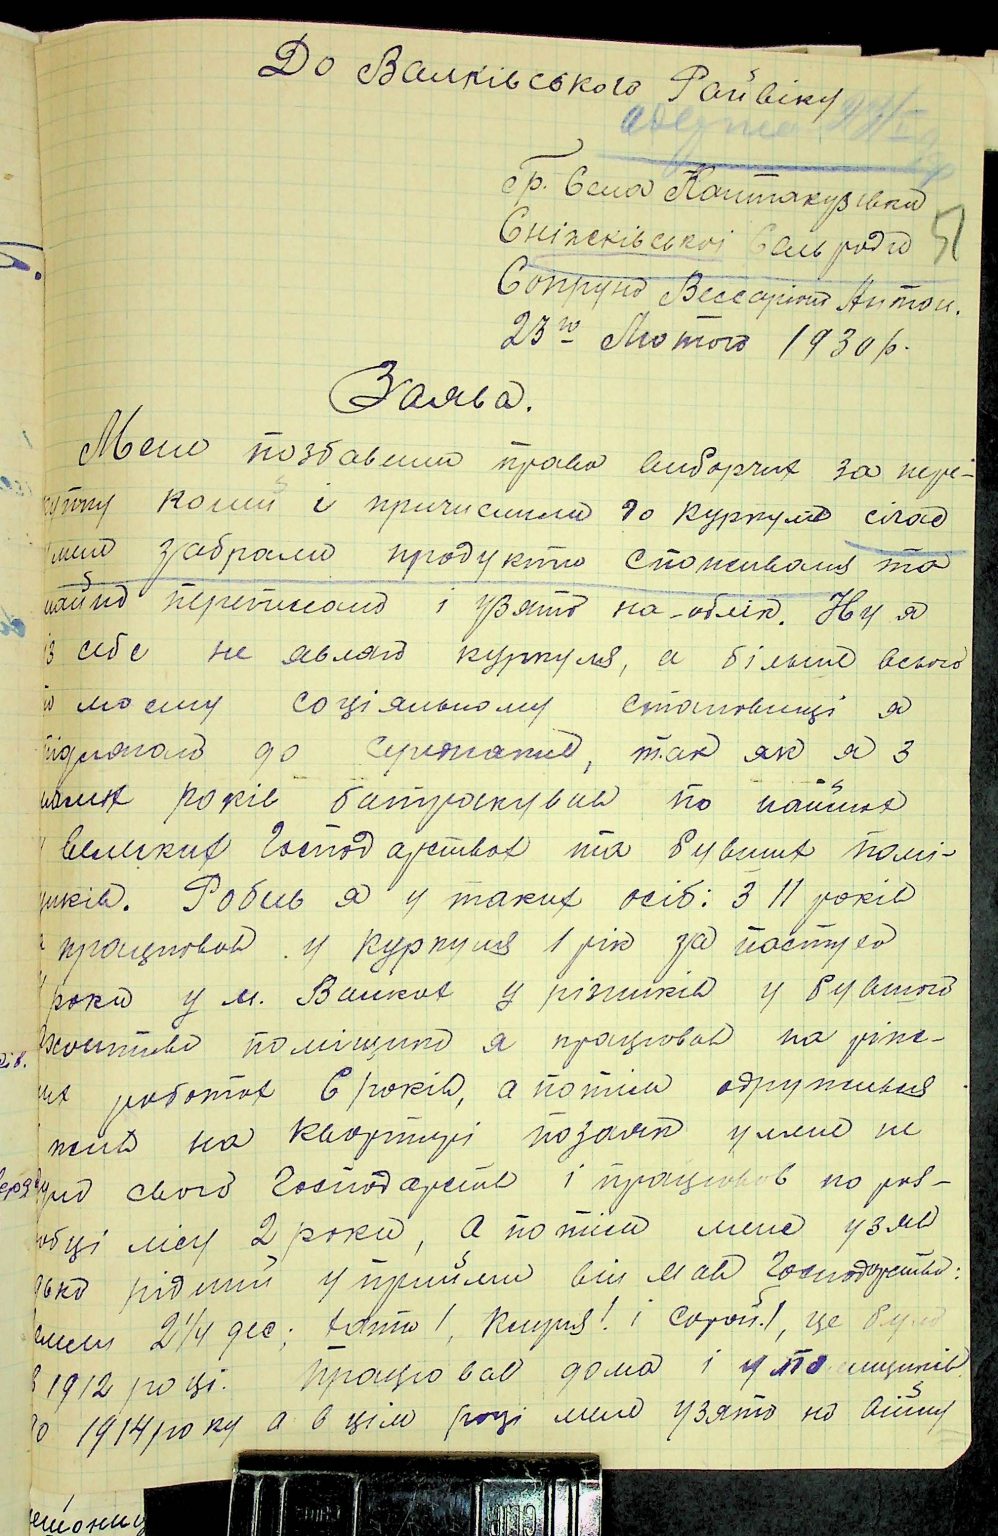 До Валківського Райвіку
гр. Села Кантакузівки
Сніжківської Сельради
51
Сопруна Вессаріона Антон.
23го Лютого 1930 р.
Заява.
Мене позбавили права виборчих за пері-
купку коней і причислили до куркулів
мене забрали продукти споживаня та
майно переписано і узято на-облік. Ну я
із себе не являю куркуля, а більше всього
по моєму соціяльному становищі я
підлягаю до середняків, так як я з
малих років батракував по наймах
у великих господарствах та бувших помі-
щиків. Робив я у таких осіб: З 11 років
я працював у куркуля 1 рік за пастуха
роки у м. Валках у різників у бувшого
поміщика я працював на ріж-
них работах 6 років, а потім одружився
жив на квартирі позаяк у мене не
було свого господарства і працював по роз-
робці лісу 2 роки, а потім мене узяв
дядько рідний у прийми він мав господарство:
землі 2 1/4 дес; хата 1, клуня 1 і сарай 1, це було
в 1912 році. Працював дома і у поміщиків
до 1914 року а в цім році мене узято на війну